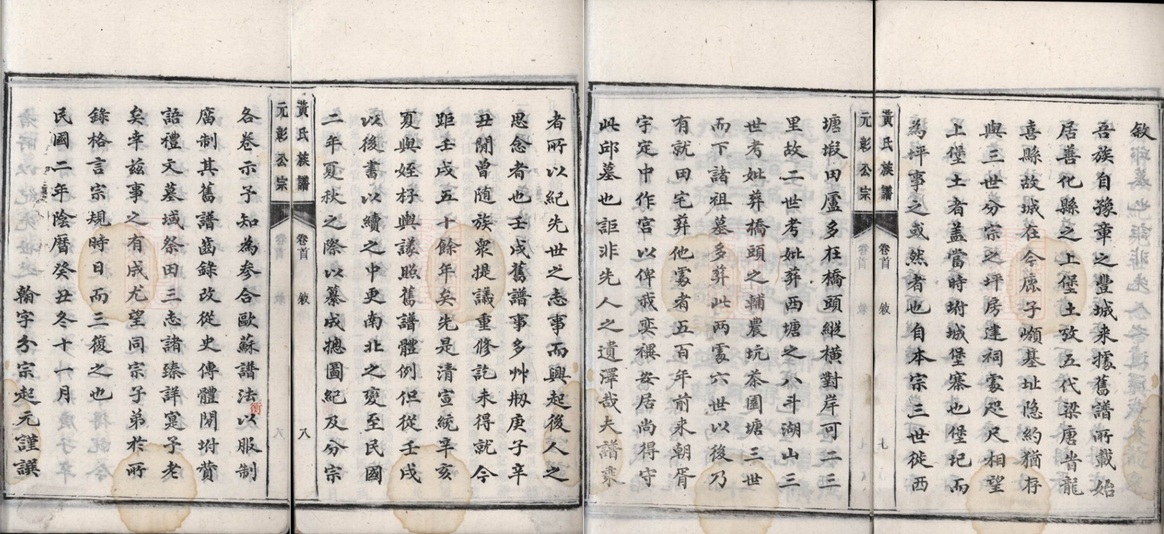 敘
吾族自豫章之豐城來據舊譜所載始
居善化縣之上堡土攷五代梁唐昔龍
喜縣故城在今鹿子嶺基址隐約猶存
與三世分宗之坪房建祠處咫尺相望
上堡土者蓋當時坿城堡寨也堡圮而
為坪事之或然者也自本宗三世徙西
黃氏族譜 卷首 敘 七
元彰公宗
塘塅田廬多在橋頭縱橫對岸可二三
里故二世考妣葬西塘之八斗湖山三
世考妣葬橋頭之輔農坑茶園塘三世
而下諸祖墓多葬此两處六世以後乃
有就田宅葬他處者五百年前來朝胥
宇定中作宮以俾戒耍禩安居尚得守
此邱墓也詎非先人之遺澤哉夫譜乘
者所以紀先世之志事而興起後人之
思念者也壬戌舊譜事多艸刱庚子辛
丑間曾随族衆提議重修訖未得就今
距壬戌五十餘年矣先是清宣統辛亥
夏與姪杍興議照舊譜體例但從壬戌
以後書以續之中更南北之變至民國
二年夏秋之際以纂成摠圖紀及分宗
黃氏族譜 卷首 敘 八
元彰公宗
各卷示子知為参合歐蘇譜法以服制
廣制其舊譜齒錄改從史傳體閒坿賞
語禮文墓域祭田三志諸臻詳寔子老
矣幸兹事之有成尤望同宗子弟於所
錄格言宗規時日而三復之也
民國二年陰曆癸丑冬十一月
翰字分宗起元謹譔